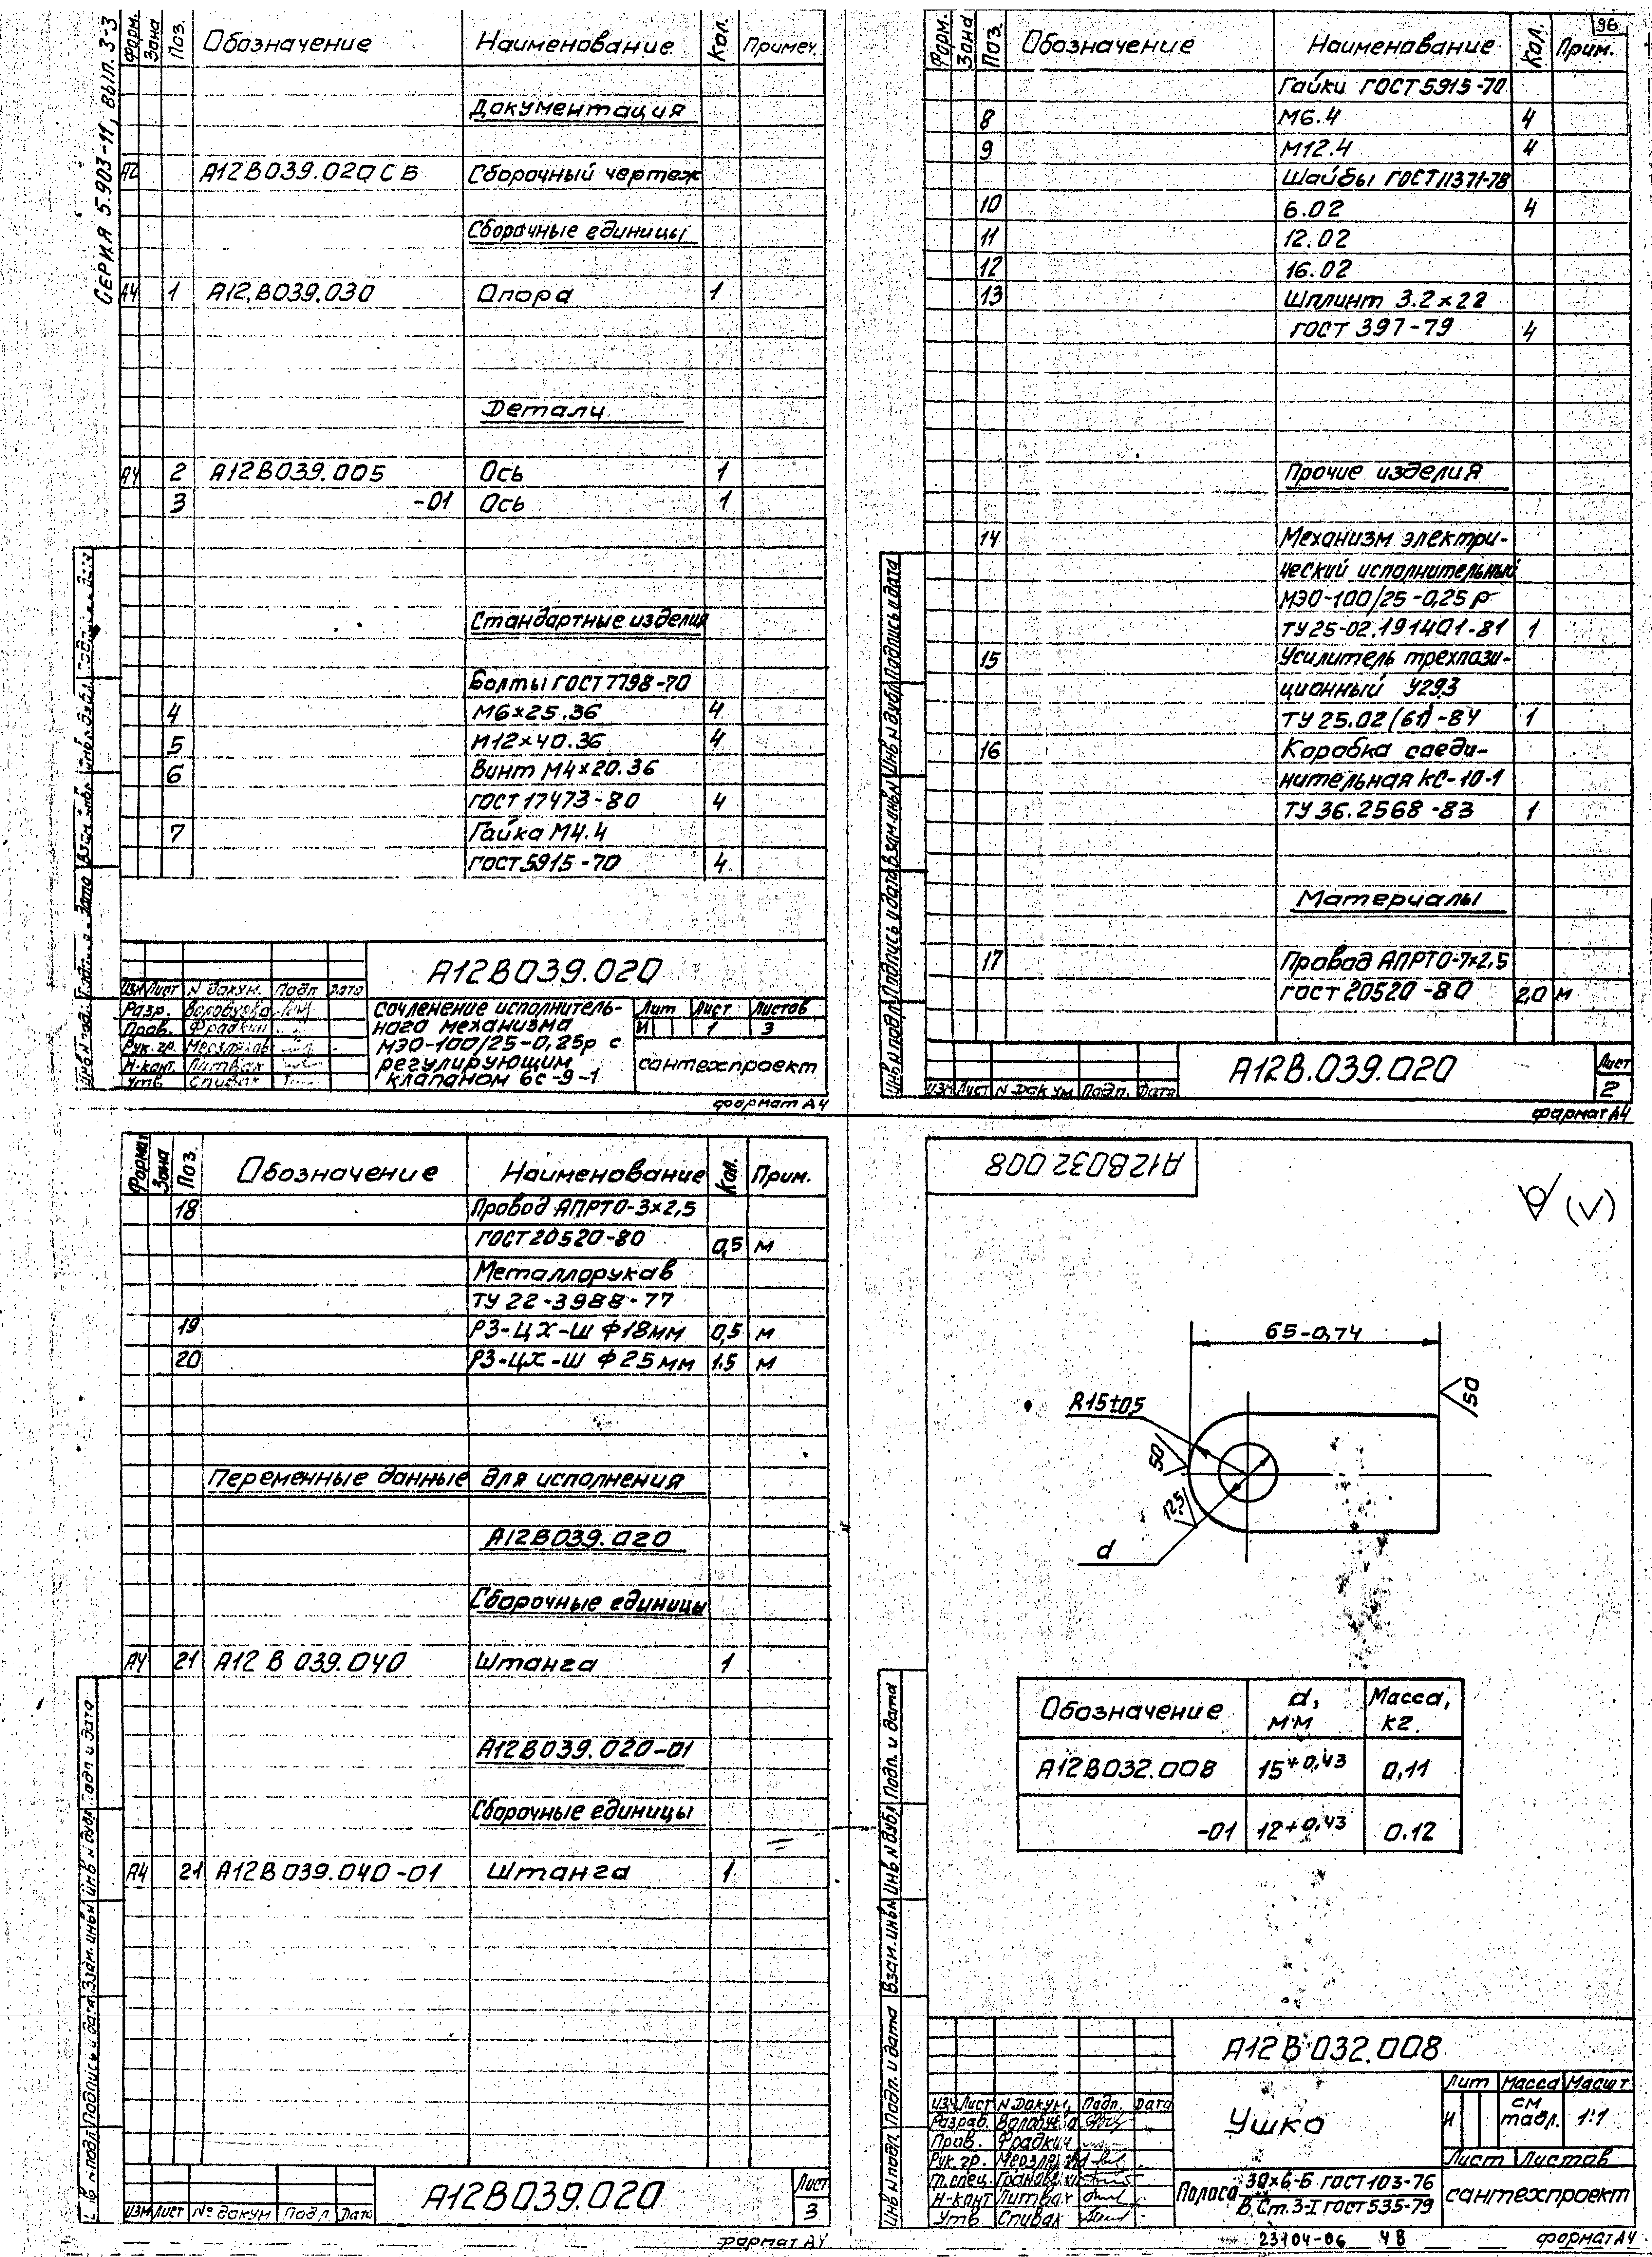 СЕРИЯ 5.903-11, ВЫП. 3-3
Форм. Зона Поз. Обозначение Наименование Кол. Примеч.
Документация
А2 А12В039.020СБ Сборочный чертеж
Сборочные единицы
А4 1 А12.В039.030 Опора 1
Детали
А4 2 А12В039.005 Ось 1
3 -01 Ось 1
Стандартные изделия
Болты ГОСТ 7798-70
4 М6×25.36 4
5 М12×40.36 4
6 Винт М4×20.36
ГОСТ 17473-80 4
7 Гайка М4.4
ГОСТ 5915-70 4
А12В039.020
Изм Лист N докум. Подп Дата
Разр.
Пров. Фрадкин
Рук.гр.
Н.конт. Литвак
Утв Спивак
Сочленение исполнитель-
ного механизма
МЭО-100/25-0,25р с
регулирующим
клапаном 6с-9-1
Лит Лист Листов
И 1 3
сантехпроект
формат А4
96
Форм. Зона Поз. Обозначение Наименование Кол. Прим.
Гайки ГОСТ 5915-70
8 М6.4 4
9 М12.4 4
Шайбы ГОСТ 11371-78
10 6.02 4
11 12.02
12 16.02
13 Шплинт 3.2×22
ГОСТ 397-79 4
Прочие изделия
14 Механизм электри-
ческий исполнительный
МЭО-100/25-0,25р
ТУ 25-02.191401-81 1
15 Усилитель трехпози-
ционный У29,3
ТУ 25.02(61)-84 1
16 Коробка соеди-
нительная КС-10-1
ТУ 36.2568-83 1
Материалы
17 Провод АПРТО-7×2,5
ГОСТ 20520-80 2,0 м
Инв N подл Подпись и дата Взам инв N Инв N дубл Подпись и дата
Изм Лист N докум Подп. Дата
А12В.039.020
Лист
2
формат А4
Формат Зона Поз. Обозначение Наименование Кол. Прим.
18 Провод АПРТО-3×2,5
ГОСТ 20520-80 0,5 м
Металлорукав
ТУ 22-3988-77
19 РЗ-ЦХ-Ш Ф18мм 0,5 м
20 РЗ-ЦХ-Ш Ф25мм 1.5 м
Переменные данные для исполнения
А12В039.020
Сборочные единицы
А4 21 А12 В 039.040 Штанга 1
А12В039.020-01
Сборочные единицы
А4 21 А12В039.040-01 Штанга 1
Подпись и дата Взам. инв N Инв N дубл Подп и дата
Изм Лист № докум Подп Дата
А12В039.020
Лист
3
формат А4
А12В032 008
(√)
65-0,74
50
R15±0,5
50
12,5
d
Обозначение d, мм Масса, кг.
А12В032.008 15+0,43 0,11
-01 12+0,43 0.12
Инв N подл. Подп. и дата Взам. инв N Инв N дубл Подп. и дата
А12 В 032.008
Изм Лист N докум. Подп. Дата
Разраб.
Пров. Фрадкин
Рук.гр.
Гл.спец.
Н-конт Литвак
Утв Спивак
Ушко
Лит Масса Масшт
И см табл. 1:1
Лист Листов
Полоса 30×6-Б ГОСТ 103-76
В.Ст.3-I ГОСТ 535-79
сантехпроект
23104-06 48
формат А4